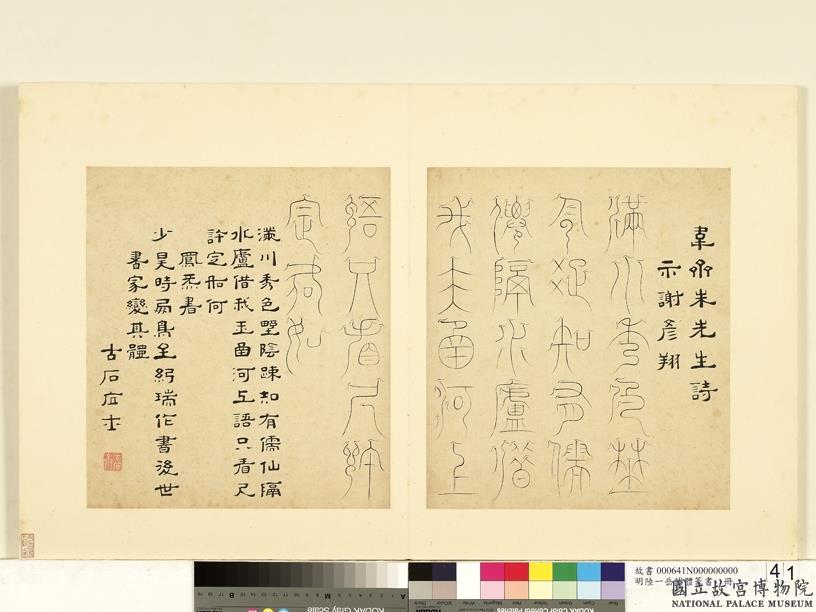 韋齋朱先生詩
示謝彥翔
滿川秀色埜
陰疎知有儒
僊隔水廬借
我玉函河上
語只看尺許
定何如
滿川秀色墅陰疎知有儒仙隔
水廬借我玉函河上語只看尺
許定如何
鳳炁書
少昊時鳳鳥至紀瑞作書後世
書家變其體
古石居士
故書 000641N000000000
明陸一岳 體篆書 冊
41
國立故宮博物院
NATIONAL PALACE MUSEUM